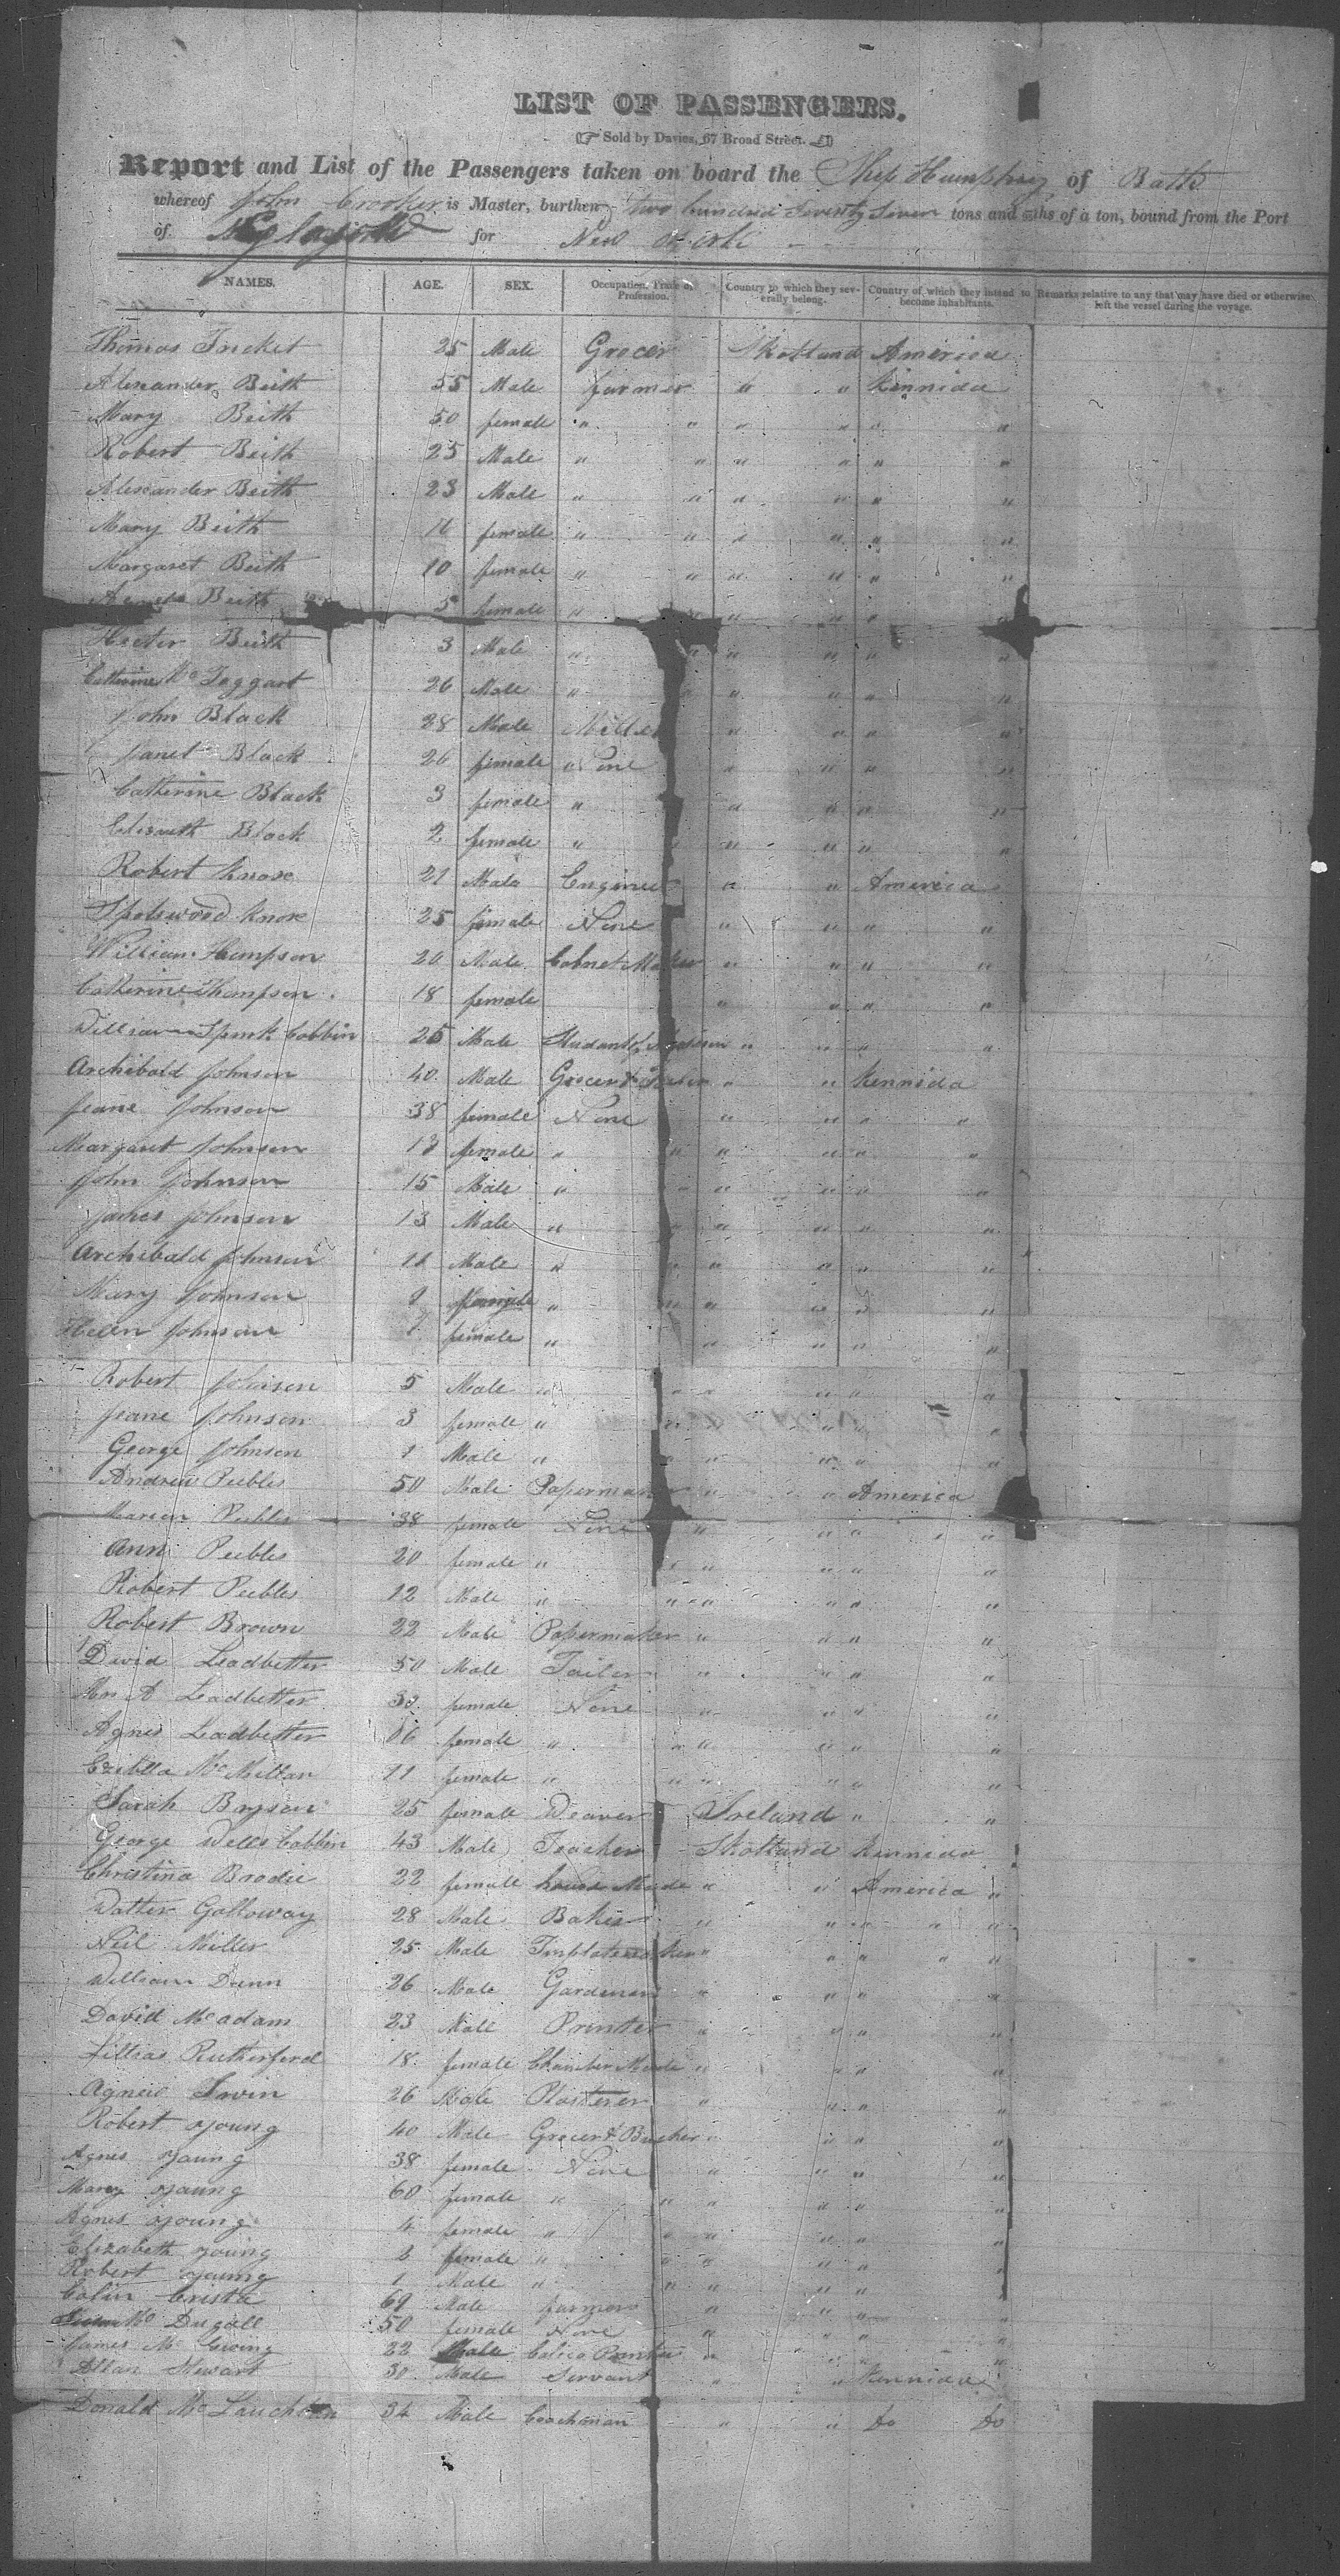 LIST OF PASSENGERS.
Sold by Davies, 67 Broad Street.
Report and List of the Passengers taken on board the Ship Humphrey of Bath
whereof John Crooker is Master, burthen two hundred Seventy Seven tons and ths of a ton, bound from the Port
of for New York
NAMES. AGE. SEX. Occupation, Trade or Profession. Country to which they severally belong. Country of which they intend to become inhabitants. Remarks relative to any that may have died or otherwise left the vessel during the voyage.
Thomas 25 Male Grocer Skotland America
Alexander Beith 55 Male farmer " " Kennida
Mary Beith 50 female " " " " " "
Robert Beith 25 Male " " " " " "
Alexander Beith 23 Male " " " " " "
Mary Beith 16 female " " " " " "
Margaret Beith 10 female " " " " " "
Beith 5 female " " " " " "
Hector Beith 3 Male " " " " " "
Catherine Mc Taggart 26 Male " " " " " "
John Black 28 Male Miller " " " "
Janet Black 26 female None " " " "
Catherine Black 3 female " " " " "
Elisauth Black 2 female " " " " "
Robert Knox 21 Male Engineer " " America
Spotswood Knox 25 female None " " " "
William Thompson 20 Male Cabnet Maker " " " "
Catherine Thompson 18 female " " " "
William Spink Cobbin 25 Male " " " "
Archibald Johnson 40 Male Grocer & " " Kennida
Jeane Johnson 38 female None " " " "
Margaret Johnson 17 female " " " " " "
John Johnson 15 Male " " " " " "
James Johnson 13 Male " " " " " "
Archibald Johnson 11 Male " " " " " "
Mary Johnson 9 female " " " " " "
Helen Johnson 7 female " " " " "
Robert Johnson 5 Male " " " " " "
Jeane Johnson 3 female " " " " " "
George Johnson 1 Male " " " " " "
Andrew Peebles 50 Male Papermaker " " America
Marion Peebles 38 female None " " " "
Ann Peebles 20 female " " " " " "
Robert Peebles 12 Male " " " " " "
Robert Brown 22 Male Papermaker " " " "
David Leadbetter 50 Male Tailor " " " "
Mrs A Leadbetter 30 female None " " " "
Agnes Leadbetter 16 female " " " " " "
Mc Millan 11 female " " " " " "
Sarah Bryson 25 female Weaver Ireland " "
George Wells Cobbin 43 Male Teacher Skotland Kennida
Christina Brodie 22 female house Made " " America "
Walter Galloway 28 Male Baker " " " " "
Neil Miller 25 Male Tinplateworker " " " " "
William Dunn 26 Male Gardener " " " "
David Mc adam 23 Male Printer " " " "
Lillias Rutherford 18 female Chamber Made " " " "
Agnew Irvin 26 Male Plasterer " " " "
Robert Young 40 Male Grocer & " " " "
Agnes Young 38 female None " " " "
Mary Young 60 female " " " " " "
Agnes Young 4 female " " " " " "
Elizabeth Young 2 female " " " " " "
Robert Young 1 Male " " " " " "
Colin Cristie 69 Male farmer " " " "
Mc Dugall 50 female None " " " "
James Mc 22 Male Calico Printer " " " "
Allan Stewart 30 Male Servant " " Kennida
Donald Mc Lauchlan 34 Male Coachman " " Do Do